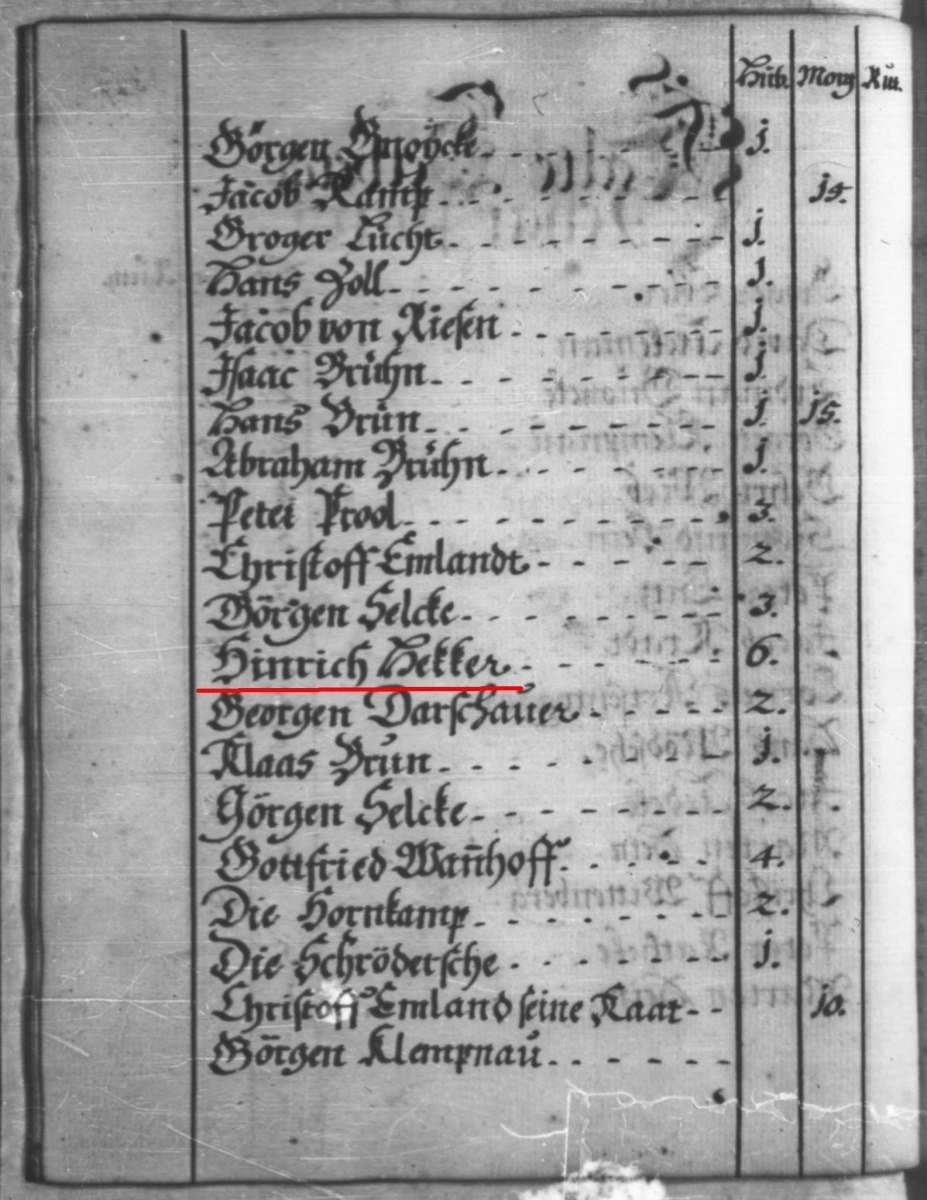 Hüb. Morg. Rut.
Görgen Gnoycke - - - - - - j.
Jacob Kamp - - - - - - 15.
Groger Lücht - - - - - - j.
Hans Zoll - - - - - - j.
Jacob von Riesen - - - - - - j.
Isaac Brühn - - - - - - j.
Hans Brün - - - - - - j. 15.
Abraham Brühn - - - - - - j.
Peter Prool - - - - - - 3.
Christoff Emlandt - - - - - 2.
Görgen Selcke - - - - - - 3.
Hinrich Hekker - - - - - 6.
Georgen Darschauer - - - - 2.
Klaas Brun - - - - - - j.
Görgen Selcke - - - - - - 2.
Gottfried Wanhoff - - - - 4.
Die Hornkamp - - - - - - 2.
Die Schrödersche - - - - - j.
Christoff Emland seine Kaat - - 10.
Görgen Klempnau - - - - - -